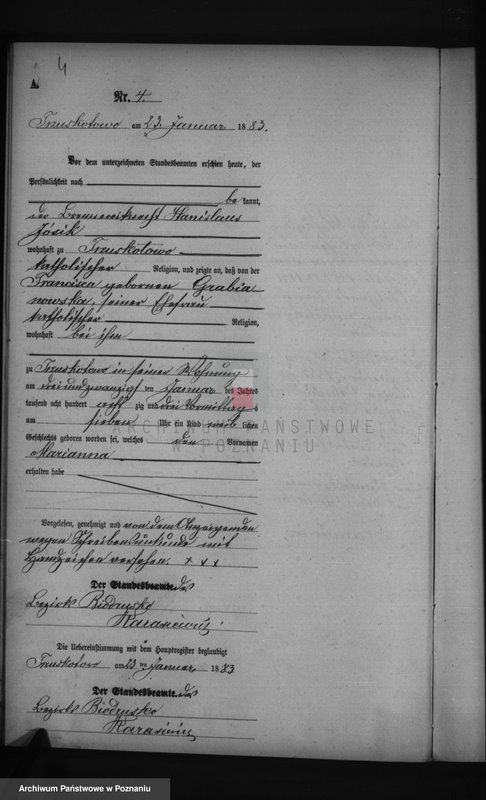 4
A.
Nr. 4.
Truskotowo am 23. Januar 1883.
Vor dem unterzeichneten Standesbeamten erschien heute, der
Persönlichkeit nach
be kannt,
der Brennereiknecht Stanislaus
Józik
wohnhaft zu Truskotowo
katholischer Religion, und zeigte an, daß von der
Francisca geborenen Grabia
nowska, seiner Ehefrau
katholischer Religion,
wohnhaft bei ihm
zu Truskotowo in seiner Wohnung
am dreiundzwanzigsten Januar des Jahres
tausend acht hundert acht zig und drei Vormittags
um sieben Uhr ein Kind weib lichen
Geschlechts geboren worden sei, welches den Vornamen
Marianna
erhalten habe
Vorgelesen, genehmigt und von dem Anzeigenden
wegen Schreibensunkunde mit
Handzeichen versehen. + + +
Der Standesbeamte. des
Bezirks Biedrusko
Karasiewicz
Die Uebereinstimmung mit dem Hauptregister beglaubigt
Truskotowo am 23ten Januar 1883
Der Standesbeamte. des
Bezirks Biedrusko
Karasiewicz
ARCHIWUM PAŃSTWOWE
W POZNANIU
Archiwum Państwowe w Poznaniu